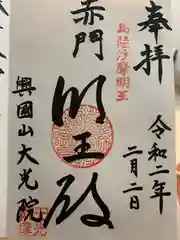 奉拝
令和二年
二月二日
烏芻沙摩明王
赤門
明王殿
興國山大光院